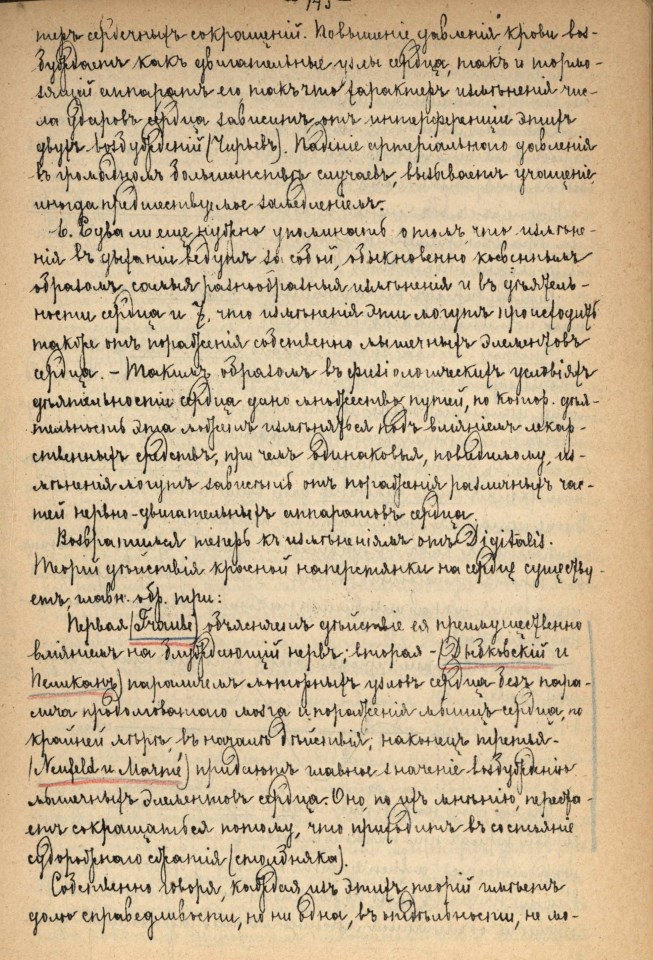 — 145 —
теръ сердечныхъ сокращеній. Повышеніе давленія крови воз-
буждаетъ какъ двигательные узлы сердца, такъ и тормо-
зящій аппаратъ его такъ что характеръ измѣненія чис-
ла ударовъ сердца зависитъ отъ интерференціи этихъ
двухъ возбужденій (Чирьевъ). Паденіе артеріальнаго давленія
въ громадномъ большинствѣ случаевъ, вызываетъ учащеніе,
иногда предшествуемое замедленіемъ.
6. Едва ли еще нужно упоминать о томъ что измѣне-
нія въ дыханіи ведутъ за собой, обыкновенно косвеннымъ
образомъ самыя разнообразныя измѣненія и въ дѣятель-
ности сердца и 7, что измѣненія эти могутъ происходить
также отъ пораженія собственно мышечныхъ элементовъ
сердца. — Такимъ образомъ въ физіологическихъ условіяхъ
дѣятельности сердца дано множество путей, по котор. дѣя-
тельность эта можетъ измѣняться подъ вліяніемъ лекар-
ственныхъ средствъ, при чемъ одинаковыя, повидимому, из-
мѣненія могутъ зависѣть отъ пораженія различныхъ час-
тей нервно-двигательныхъ аппаратовъ сердца.
Возвратимся теперь къ измѣненіямъ отъ Digitalis.
Теорій дѣйствія красной наперстянки на сердце существу-
етъ, главн. обр. три:
Первая (Traube) объясняетъ дѣйствіе ея преимущественно
вліяніемъ на блуждающій нервъ; вторая — (Дыбковскій и
Пеликанъ) параличемъ моторныхъ узловъ сердца безъ пара-
лича продолговатаго мозга и пораженія мышцъ сердца, по
крайней мѣрѣ, въ началѣ дѣйствія; наконецъ третья —
(Neufeld и Мачтѣ) придаютъ главное значеніе возбужденію
мышечныхъ элементовъ сердца. Оно, по ихъ мнѣнію, переста-
етъ сокращаться потому, что приходитъ въ состояніе
судорожнаго сжатія (столбняка).
Собственно говоря, каждая изъ этихъ теорій имѣетъ
долю справедливости, но ни одна, въ отдѣльности, не мо-